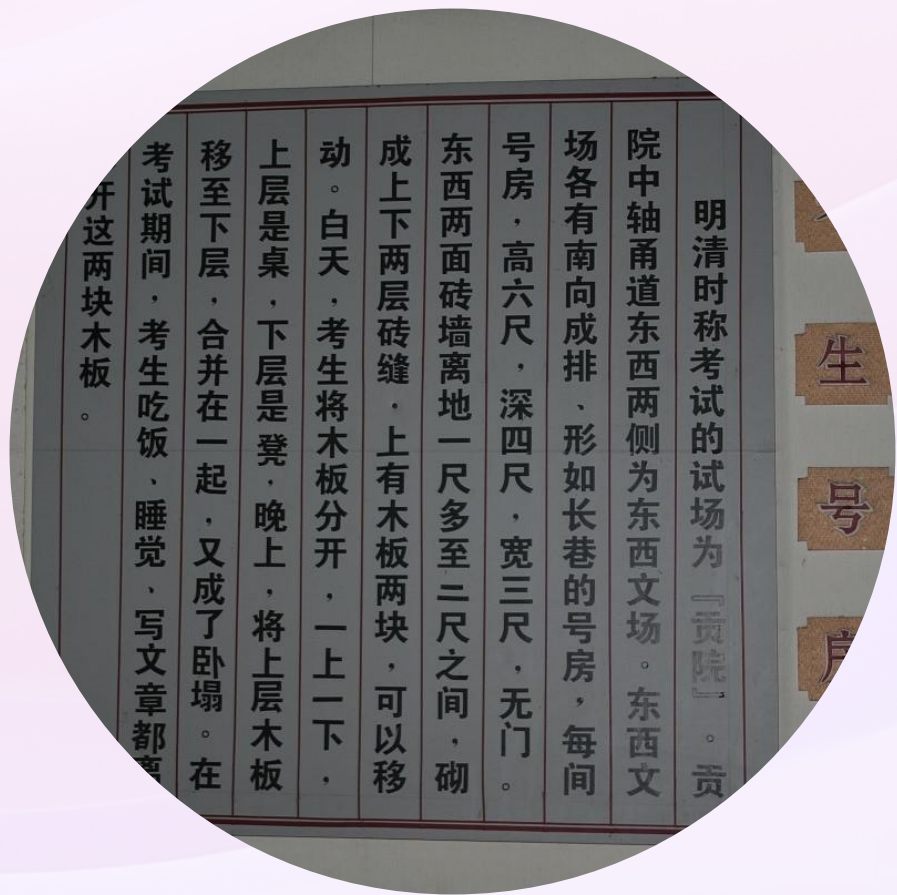 生号房
明清时称考试的试场为『贡院』。贡
院中轴甬道东西两侧为东西文场。东西文
场各有南向成排、形如长巷的号房，每间
号房，高六尺，深四尺，宽三尺，无门。
东西两面砖墙离地一尺多至二尺之间，砌
成上下两层砖缝，上有木板两块，可以移
动。白天，考生将木板分开，一上一下，
上层是桌，下层是凳，晚上，将上层木板
移至下层，合并在一起，又成了卧塌。在
考试期间，考生吃饭、睡觉、写文章都离
开这两块木板。